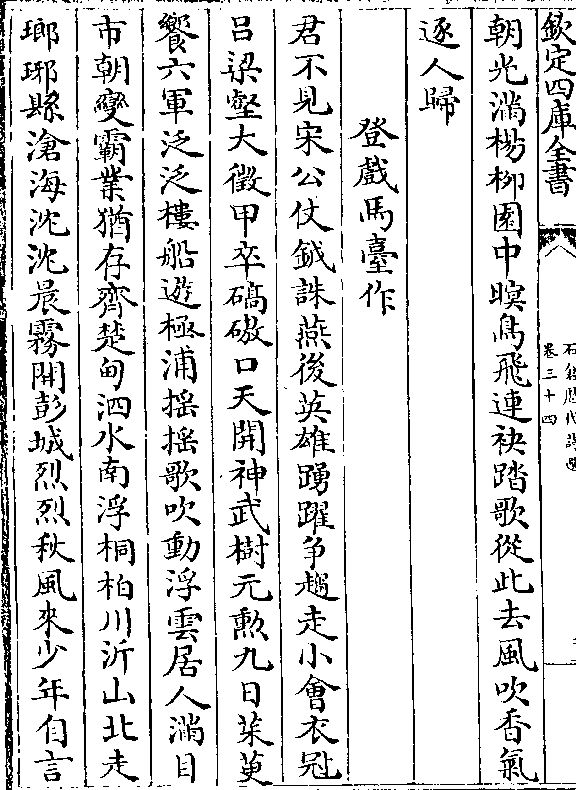 欽定四庫全書
石倉歷代詩選
卷三十四
朝光滿楊柳園中暝鳥飛連袂踏歌從此去風吹香氣
逐人歸
登戲馬臺作
君不見宋公仗鉞誅燕後英雄踴躍争趨走小會衣冠
呂梁壑大徵甲卒碻磝口天開神武樹元勲九日茱萸
饗六軍泛泛樓船遊極浦揺揺歌吹動浮雲居人滿目
市朝變霸業猶存齊楚甸泗水南浮桐柏川沂山北走
瑯琊縣滄海沈沈晨霧開彭城烈烈秋風來少年自言